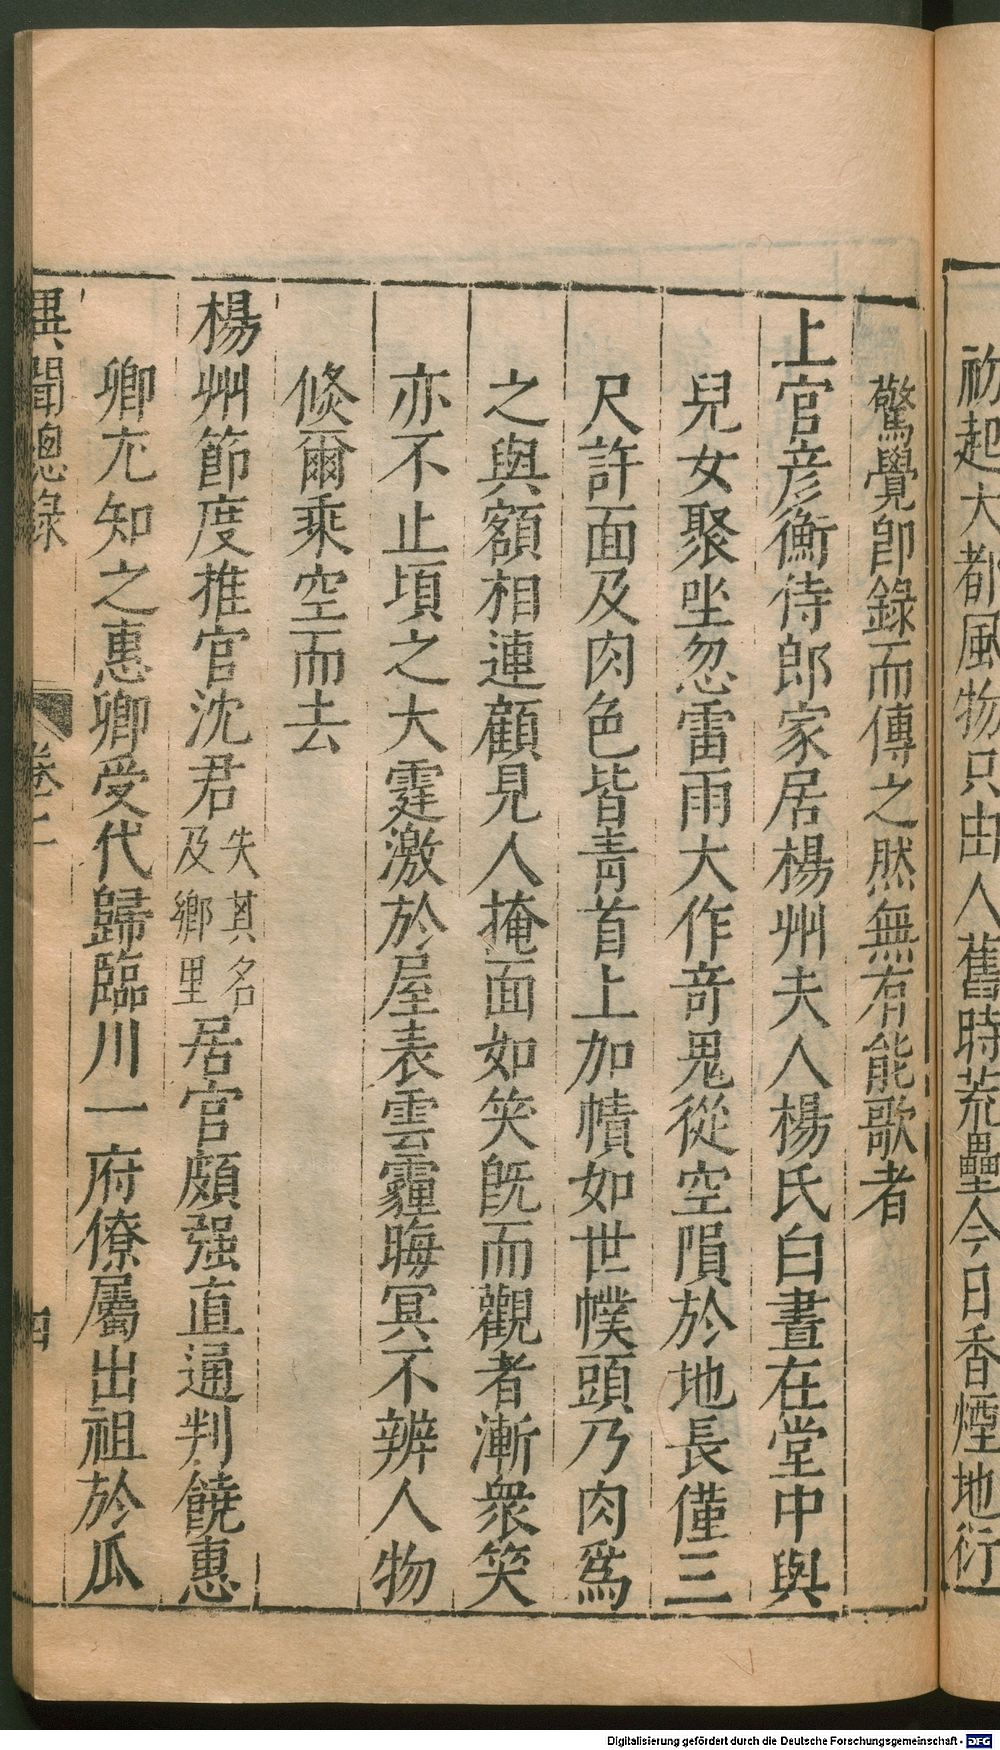 初起大都風物只由人舊時荒壘今日香煙地衍
驚覺卽錄而傳之然無有能歌者
上官彥衡侍郎家居楊州夫人楊氏白晝在堂中與
兒女聚坐忽雷雨大作奇鬼從空隕於地長僅三
尺許面及肉色皆青首上加幘如世幞頭乃肉爲
之與額相連顧見人掩面如笑旣而觀者漸衆笑
亦不止頃之大霆激於屋表雲霾晦冥不辨人物
倏爾乘空而去
楊州節度推官沈君失其名及鄉里居官頗强直通判饒惠
卿尢知之惠卿受代歸臨川一府僚屬出祖於瓜
異聞總錄 卷二 四
Digitalisierung gefördert durch die Deutsche Forschungsgemeinschaft - DFG